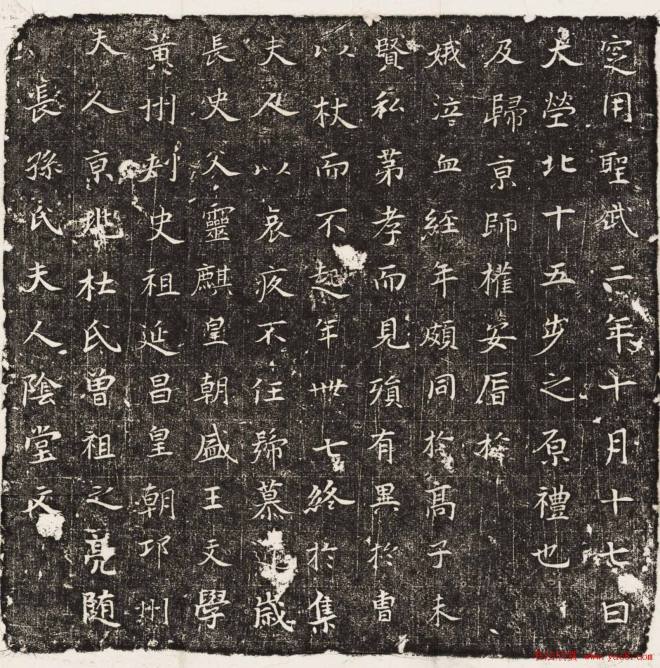 長孫氏夫人陰堂文
夫人京兆杜氏曾祖之亮随
黄州刺史祖延昌皇朝邛州
長史父靈麒皇朝盛王文學
夫人以哀疚不任號慕歲
以杖而不起年丗七終於集
賢私第孝而見殞有異於曹
娥泣血經年頗同於髙子未
及歸京師權安厝於
大塋北十五步之原禮也
窆用聖武二年十月十七日